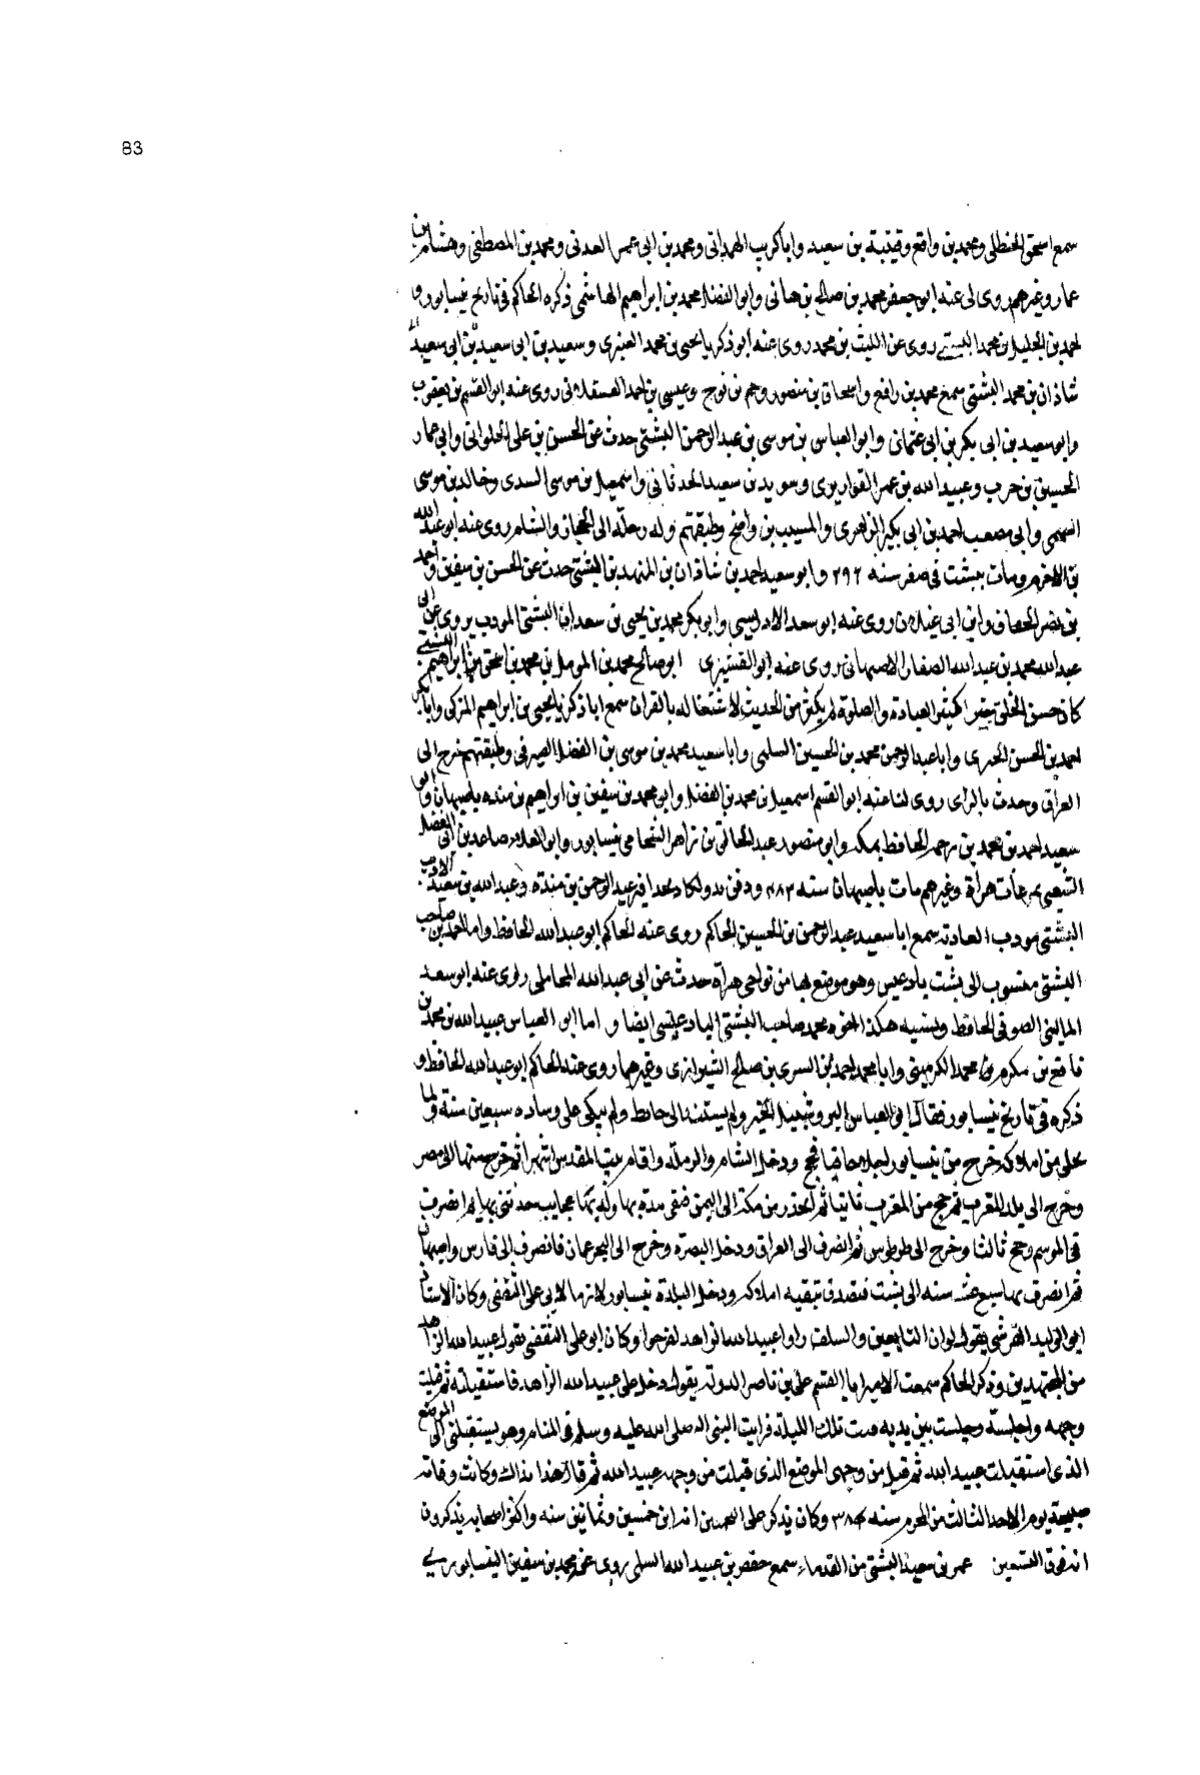 83
سمع اسحق الحنظلى ومحمد بن رافع وقتيبة بن سعيد وابا كريب الهمدانى ومحمد بن ابى عمر العدنى ومحمد بن المصطفى وهشام بن
عمار وغيرهم روى لى عنه ابو جعفر محمد بن صالح بن هانى وابو الفضل محمد بن ابراهيم الهاشمى ذكره الحاكم فى تاريخ نيسابور و
احمد بن الخليل بن محمد البشتى روى عن الليث بن محمد روى عنه ابو زكريا يحيى بن محمد العنبرى وسعيد بن ابى سعيد بن ابى سعيد
شاذان بن محمد البشتى سمع محمد بن رافع واسحاق بن منصور وحم بن نوح وعيسى بن احمد العسقلانى روى عنه ابو القسم بن يعقوب
وابو سعيد بن ابى بكر بن ابى عثمان وابو العباس بن موسى بن عبد الرحمن البشتى حدث عن الحسن بن على الحلوانى وابى عمار
الحسين بن حرب وعبيد الله بن عمر القواريرى وسويد بن سعيد الحدثانى واسمعيل بن موسى السدى وخالد بن موسى
السهمى وابى مصعب احمد بن ابى بكير الزهرى والمسيب بن واضح وطبقتهم وله رحلة الى الحجاز والشام روى عنه ابو عبد الله
بن الاخرم ومات ببشت فى صفر سنه ٢٩٢ وابو سعيد احمد بن شاذان بن البشتى حدث عن الحسن بن سفين واحمد
بن نصر الخفاف وابن ابى غيلان روى عنه ابو سعد الادريسى وابو بكر محمد بن يحيى بن سعد البشتى المودب يروى عن ابى
عبد الله محمد بن عبد الله الصفار الاصبهانى روى عنه ابو القشيرى ابو صالح محمد بن المومل بن محمد بن اسحق بن ابراهيم البشتى
كان حسن الخلق كثير العبادة والصلوة لم يكثر من الحديث لاشتغاله بالقران سمع ابا زكريا يحيى بن ابراهيم المزكى وابا بكر
احمد بن الحسن الحيرى وابا عبد الرحمن محمد بن الحسين السلمى وابا سعيد محمد بن موسى بن الفضل الصيرفى وطبقتهم خرج الى
العراق وحدث بالراى روى لنا عنه ابو القسم اسمعيل بن محمد بن الفضل وابو محمد بن سفين بن ابراهيم بن منده باصبهان وابو
سعيد احمد بن محمد بن الحافظ بمكه وابو منصور عبد الخالق بن زاهر الشحامى بنيسابور وابو العلاء صاعد بن ابى الفضل
الشعيبى بهراة وغيرهم مات باصبهان سنه ٤٨٣ ودفن عبد الرحمن بن مندة وعبد الله بن سعيد الاديب
البشتى مودب سمع ابا سعيد عبد الرحمن بن الحسين الحاكم روى عنه الحاكم ابو عبد الله الحافظ واما احمد بن صاحب
البشتى منسوب الى بشت بادغيس وهو موضع بها من نواحى هراة حدث عن ابى عبد الله المحاملى روى عنه ابو سعد
المالينى الصوفى الحافظ محمد صاحب البشتى البادغيسى ايضا و اما ابو العباس عبيد الله بن محمد بن
نافع بن مكرم بن محمد الكرمينى وابا محمد احمد بن السرى بن صالح الشيرازى وغيرهما روى عنه الحاكم ابو عبد الله الحافظ و
ذكره فى تاريخ نيسابور فقال ولم يستند الى حائط ولم يتكى على وساده سبعين سنة ولما
من املاكه خرج من نيسابور حج ودخل الشام والرملة واقام ببيت المقدس اشهرا ثم خرج منها الى مصر
وخرج الى بلد المغرب ثم حج من المغرب ثانيا ثم انحدر من مكة الى اليمن مدة بها وله بها عجايب ثم انصرف
فى الموسم وحج ثالثا وخرج الى طرطوس ثم انصرف الى العراق ودخل البصره وخرج الى عمان فانصرف الى فارس واصبهان
ثم انصرف سنه الى بشت فتصدق ببقيه املاكه ودخل البلدة نيسابور لازما لابى على الثقفى وكان الاستاذ
ابو الوليد القرشى يقول لو ان التابعين والسلف راوا عبيد الله الزاهد لفرحوا وكان ابو على الثقفى يقول عبيد الله الزاهد
من المجتهدين وذكر الحاكم سمعت الامير ابا القسم على بن ناصر الدولة يقول دخل على عبيد الله الزاهد فاستقبلته ثم قبلت
وجهه واجلسته وجلست بين يديه تلك الليلة فرايت النبى صلى الله عليه وسلم فى المنام وهو يستقبلنى الى الموضع
الذى استقبلت عبيد الله ثم قبل من وجهى الموضع الذى قبلت من وجه عبيد الله ثم قال هذا بذاك وكانت وفاته
صبيحة يوم الاحد الثالث من المحرم سنه ٣٨٤ وكان يذكر على انه ابن خمسين وثمانين سنه واكثر اصحابه يذكرون
انه فوق التسعين عمر بن سعيد البشتى من القدماء سمع حفص بن عبيد الله السلمى روى عنه محمد بن سفين النيسابورى